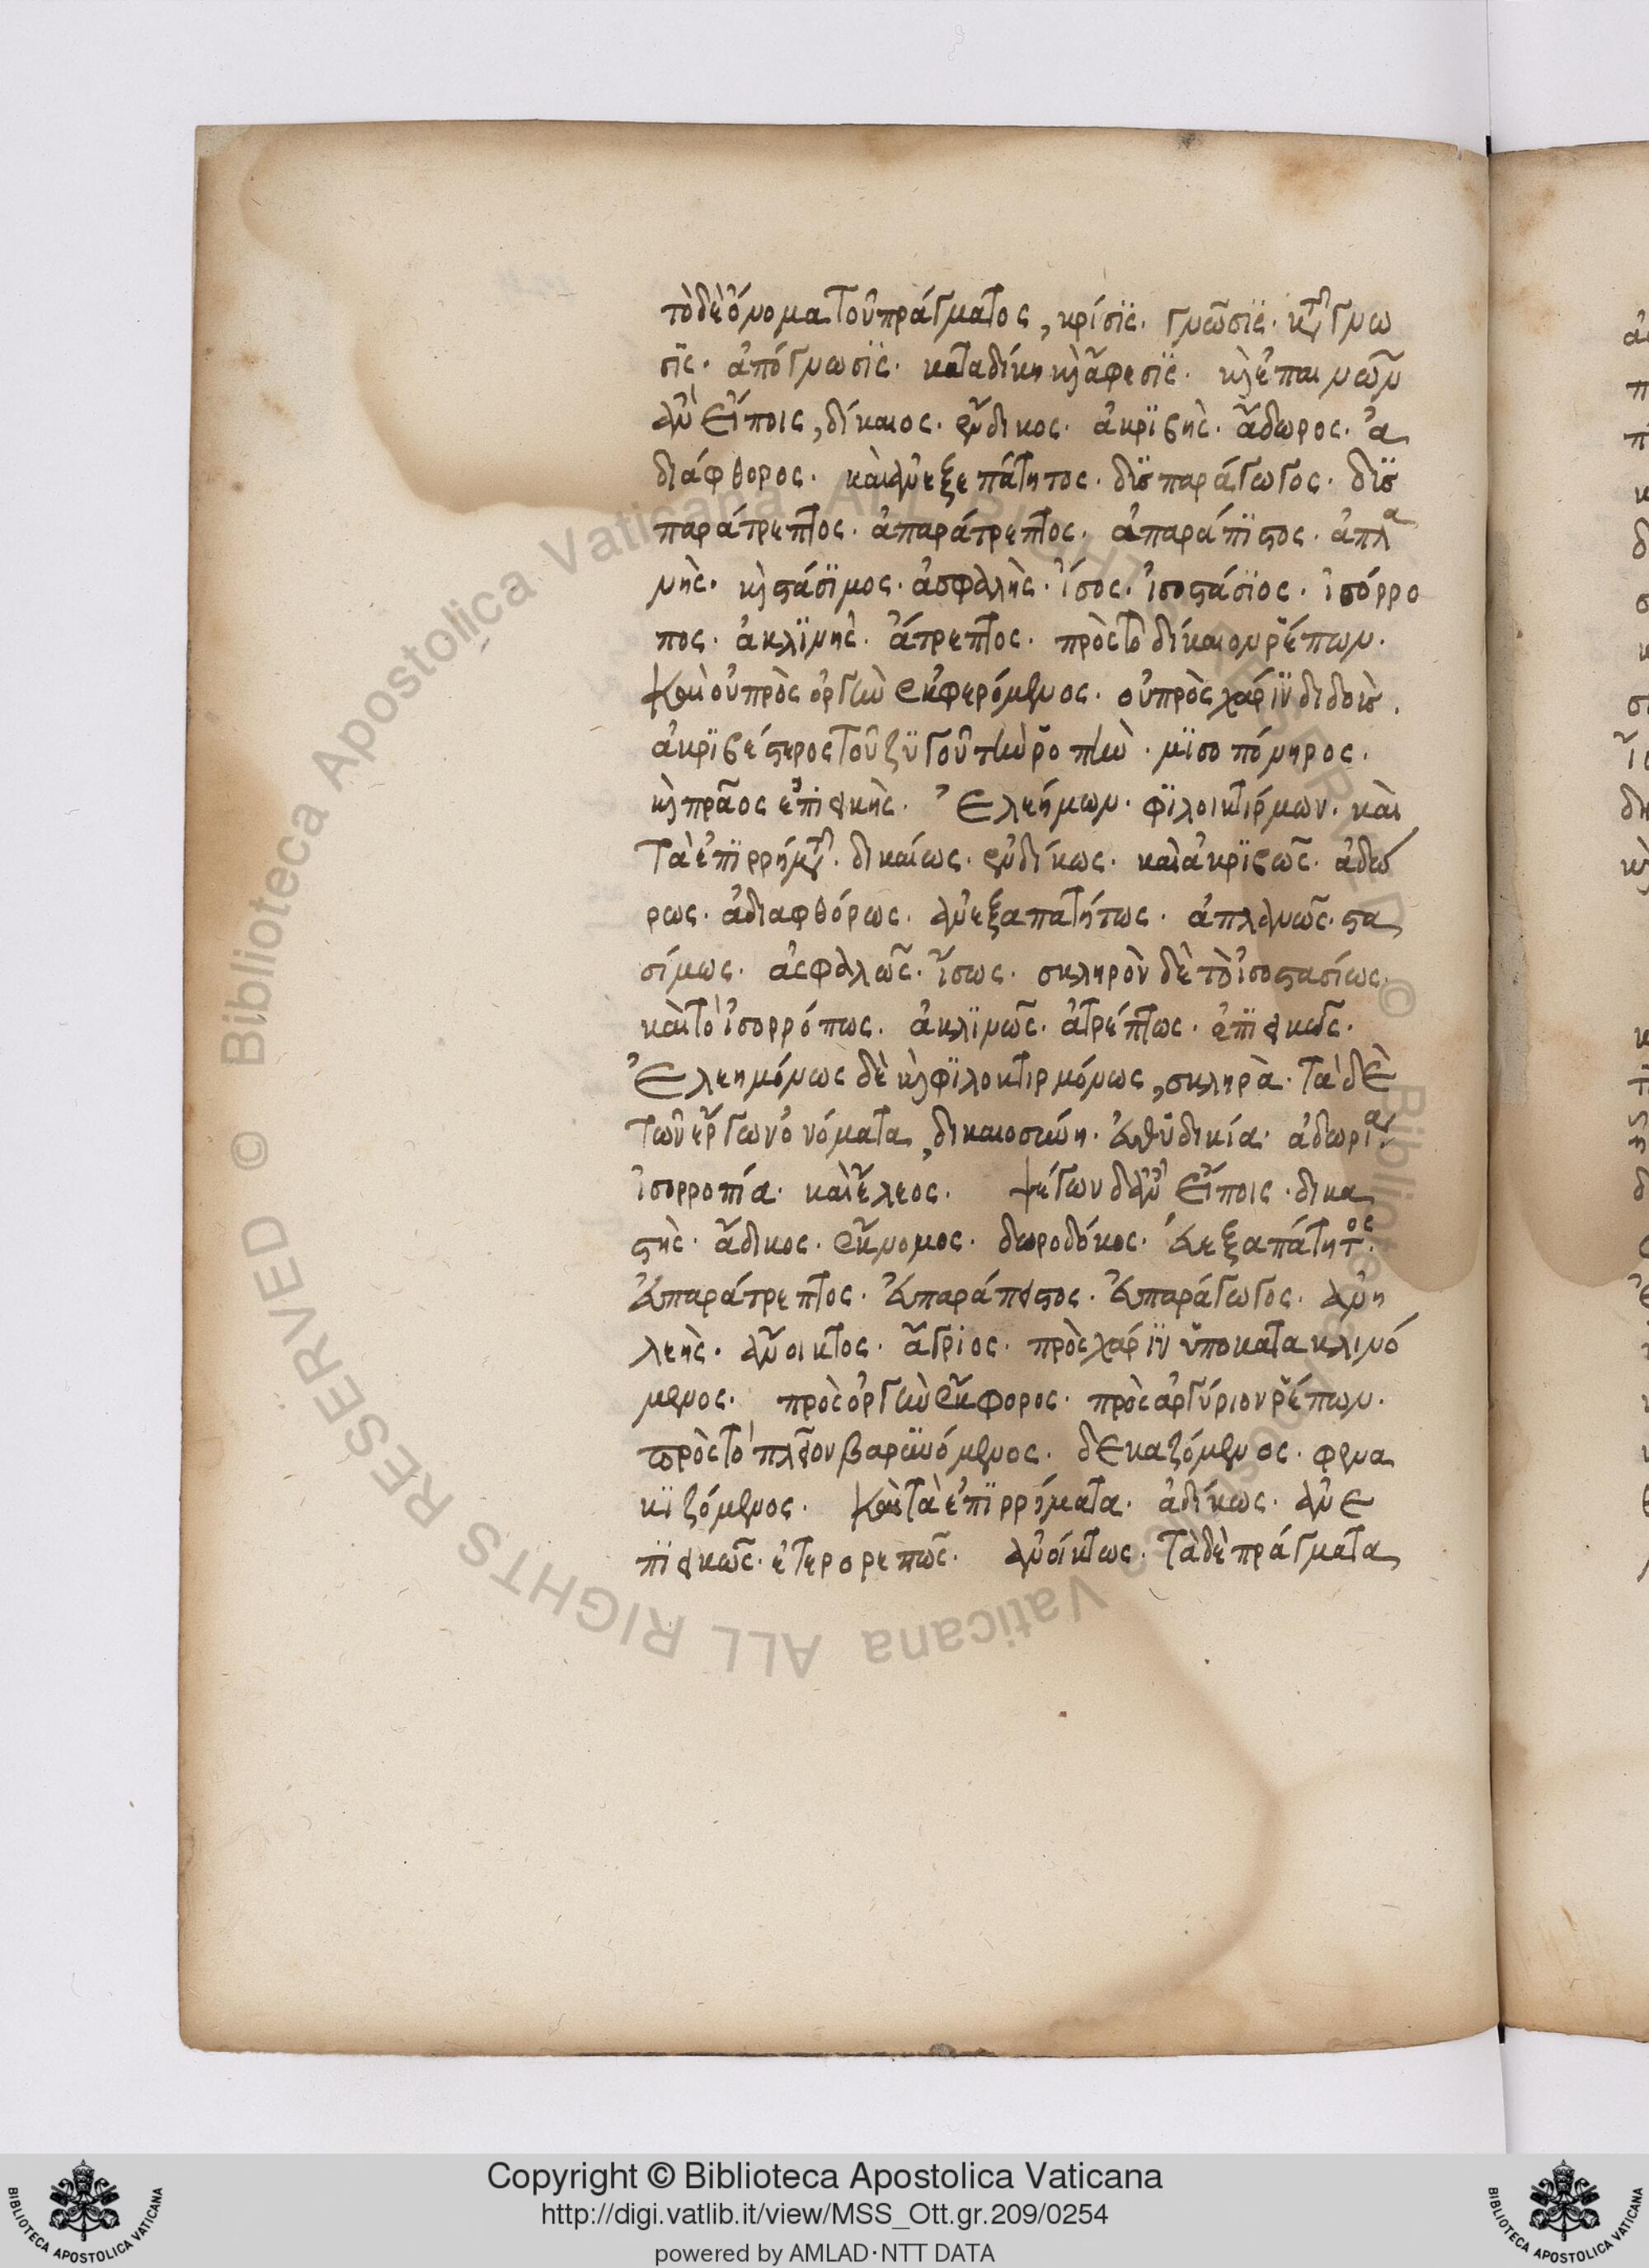 τὸ δὲ ὄνομα τοῦ πράγματος, κρίσϊς. γνῶσϊς. κατάγνω
σϊς. ἀπόγνωσϊς. καταδίκη καὶ ἄφεσϊς. καὶ ἐπαινῶν
ἂν εἴποις, δίκαιος. ἔνδικος. ἀκρϊβὴς. ἄδωρος. ἀ
διάφθορος. καὶ ἀνεξεπάτητος. δϋσπαράγωγος. δϋσ
παράτρεπτος. ἀπαράτρεπτος. ἀπαράπϊστος. ἀπλα
νὴς. καὶ στάσϊμος. ἀσφαλὴς. ἴσος. ἰσοστάσϊος. ἰσόρρο
πος. ἀκλϊνὴς. ἄτρεπτος. πρὸς τὸ δίκαιον ῥέπων.
καὶ οὐ πρὸς ὀργὴν ἐκφερόμενος. οὐ πρὸς χάρϊν διδοὺς.
ἀκρϊβέστερος τοῦ ζϋγοῦ τὴν ῥοπὴν. μϊσοπόνηρος.
καὶ πρᾶος ἐπϊεικὴς. Ἐλεήμων. φϊλοικτίρμων. καὶ
τὰ ἐπϊρρήματα. δικαίως. ἐνδίκως. καὶ ἀκρϊβῶς. ἀδώ
ρως. ἀδιαφθόρως. ἀνεξαπατήτως. ἀπλανῶς. στα
σίμως. ἀσφαλῶς. ἴσως. σκληρὸν δὲ τὸ ἰσοστασίως.
καὶ τὸ ἰσορρόπως. ἀκλϊνῶς. ἀτρέπτως. ἐπϊεικῶς.
Ἐλεημόνως δὲ καὶ φϊλοκτιρμόνως, σκληρὰ. τὰ δὲ
τῶν ἔργων ὀνόματα, δικαιοσύνη. εὐθϋδικία. ἀδωρία.
ἰσορροπία. καὶ ἔλεος. ψέγων δ' ἂν εἴποις. δικα
στὴς. ἄδικος. ἔκνομος. δωροδόκος. εὐεξαπάτητος.
εὐπαράτρεπτος. εὐπαράπειστος. εὐπαράγωγος. ἀνη
λεὴς. ἄνοικτος. ἄγρϊος. πρὸς χάρϊν ὑποκατακλινό
μενος. πρὸς ὀργὴν ἔκφορος. πρὸς ἀργύριον ῥέπων.
πρὸς τὸ πλεῖον βαρϋνόμενος. δεκαζόμενος. φενα
κϊζόμενος. καὶ τὰ ἐπϊρρήματα. ἀδίκως. ἀνε
πϊεικῶς. ἑτερορεπῶς. ἀνοίκτως. τὰ δὲ πράγματα
Copyright © Biblioteca Apostolica Vaticana
http://digi.vatlib.it/view/MSS_Ott.gr.209/0254
powered by AMLAD·NTT DATA
BIBLIOTECA APOSTOLICA VATICANA
BIBLIOTECA APOSTOLICA VATICANA
© Biblioteca Apostolica Vaticana ALL RIGHTS RESERVED
© Biblioteca Apostolica Vaticana ALL RIGHTS RESERVED